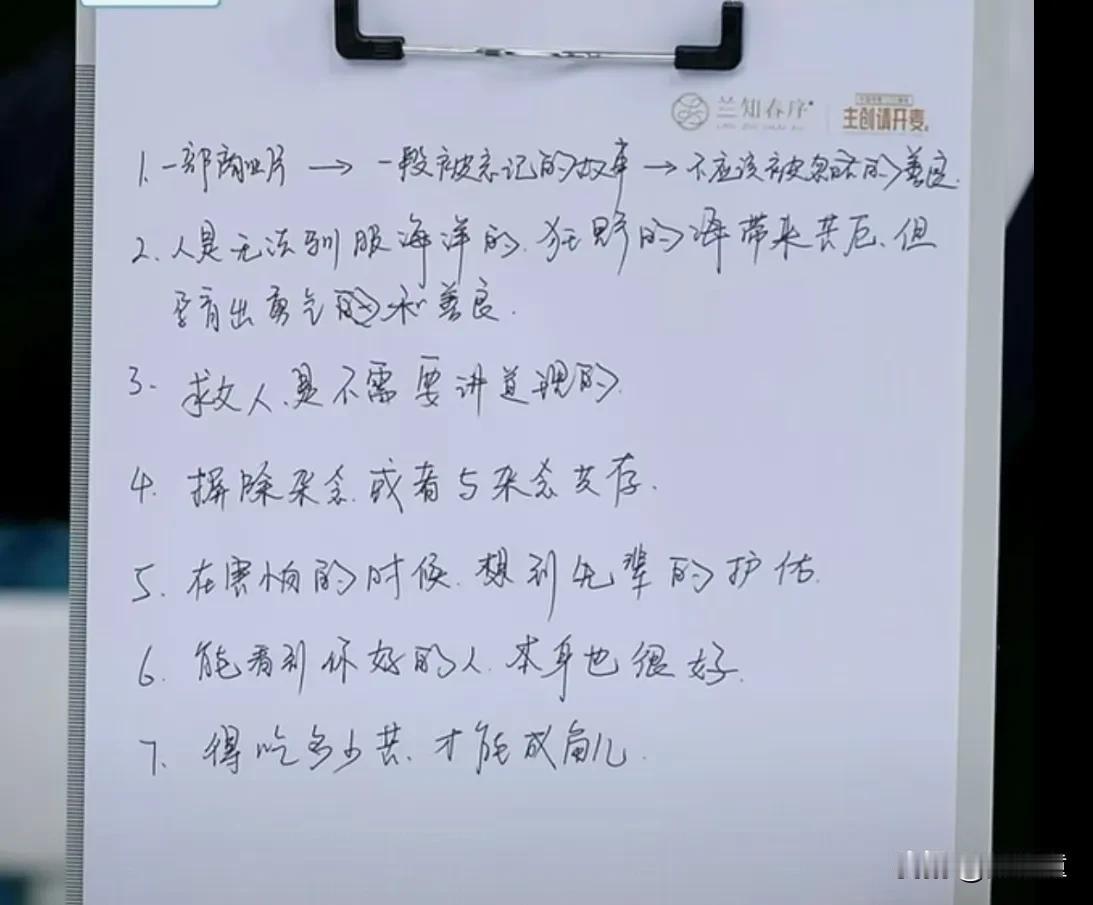 兰知春序
主创请开麦
1. 一部商业片 → 一段被忘记的故事 → 不应该被忽略的善良.
2. 人是无法驯服海洋的. 狂野的海带来苦厄、但
孕育出勇气的和善良.
3. 救人、是不需要讲道理的.
4. 摒除杂念. 或者与杂念共存.
5. 在害怕的时候. 想到先辈的护佑.
6. 能看到你好的人. 本身也很好.
7. 得吃多少苦. 才能成角儿.